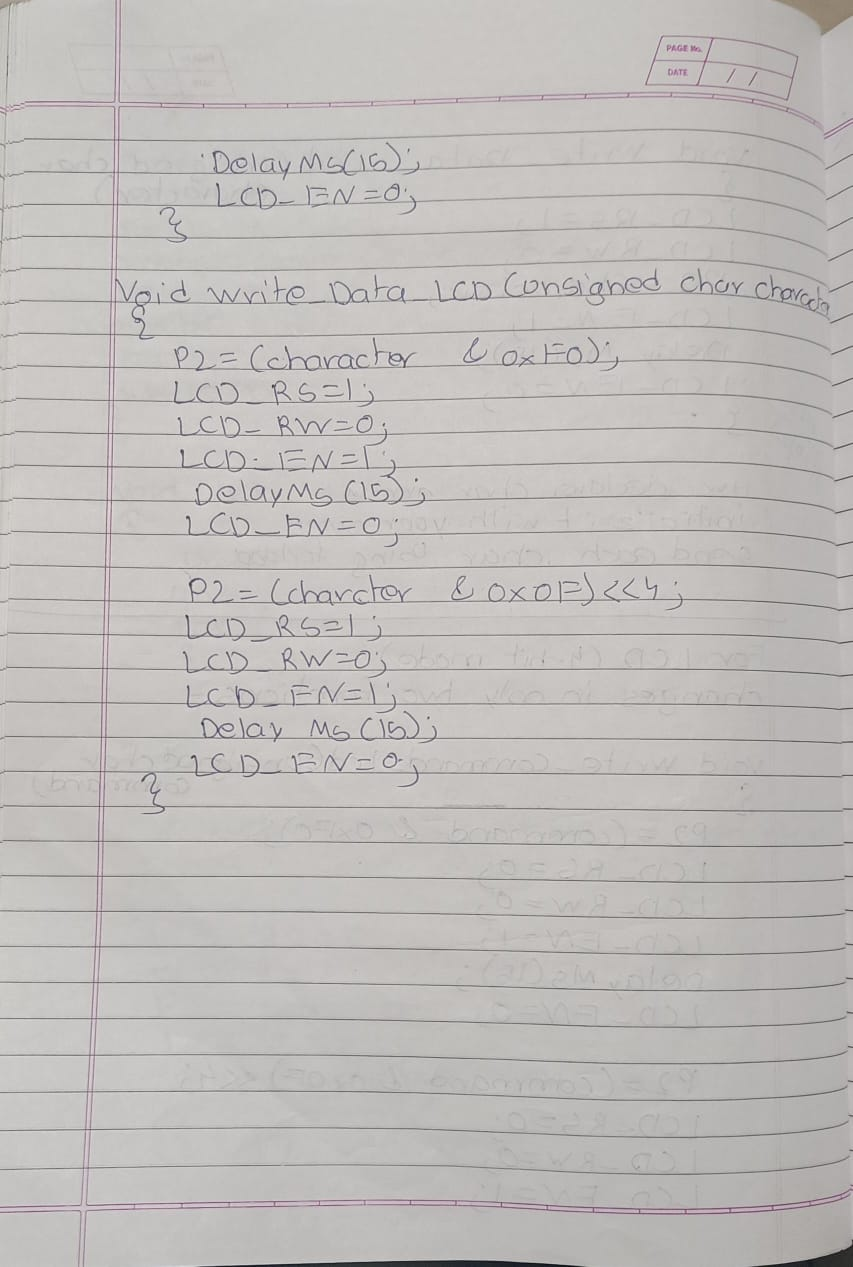 PAGE No.
DATE / /
DelayMs(15);
LCD_EN=0;
}
Void write_Data_LCD (unsigned char characte
{
P2=(character & 0xF0);
LCD_RS=1;
LCD_RW=0;
LCD_EN=1;
DelayMs(15);
LCD_EN=0;
P2=(charcter & 0x0F)<<4;
LCD_RS=1;
LCD_RW=0;
LCD_EN=1;
Delay Ms(15);
LCD_EN=0;
}